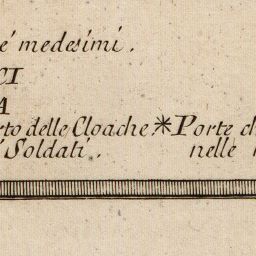 e' medesimi.
CI
A
rto delle Cloache. * Porte ch
i Soldati. nelle